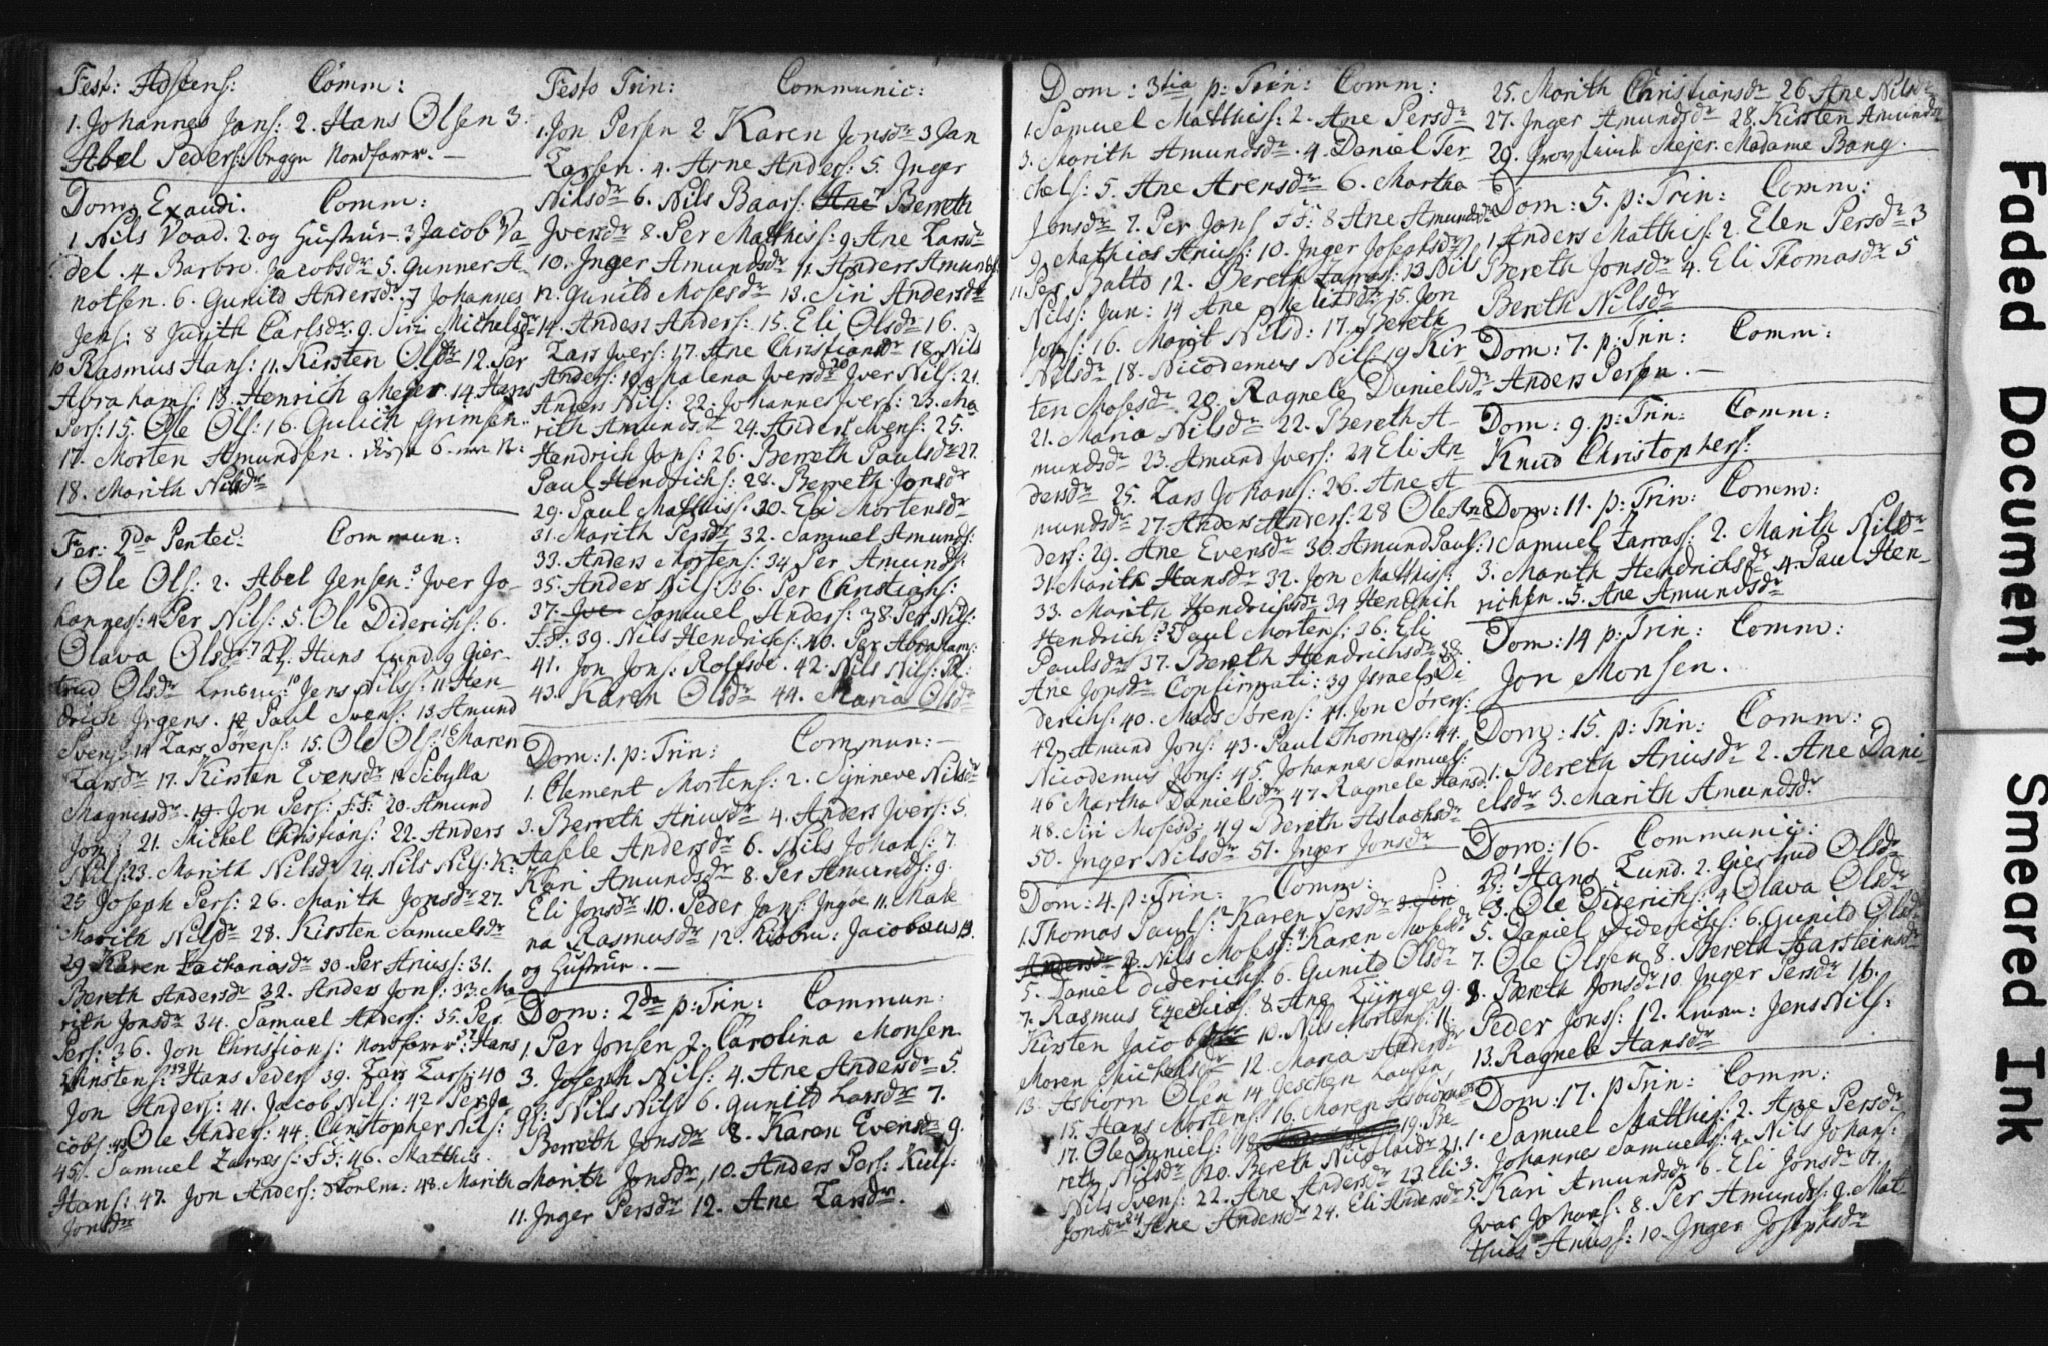 Fest: Adscens: Comm:
1. Johannes Jans: 2. Hans Olsen 3.
Abel Peders: begge Nordfarer. —
Dom: Exaudi. Comm:
1 Nils Voad. 2 og Hustrue 3 Jacob Va-
del. 4 Barbro Jacobsdr 5. Gunner A-
notsen. 6. Gunild Andersdr 7 Johannes
Jens: 8 Judith Carlsdr. 9. Siri Michelsdr
10 Rasmus Hans: 11. Kirsten Olsdr 12. Per
Abrahams: 13. Henrich Mejer. 14 Hans
Pers: 15. Ole Ols: 16. Gulich Grimsen.
17. Morten Amundsen. disse 6
18. Marith Nilsdr
Fer: 2da Pentec: Commun:
1 Ole Ols: 2. Abel Jensen 3 Jver Jo-
hannes: 4 Per Nils: 5. Ole Diderichs: 6.
Olava Olsdr 7 Hans Lund. 9 Gier-
trud Olsdr 10 Jens Nils: 11. Hen-
drich Jrgens. 12 Paul Svens: 13. Amund
Svens: 14 Lars Sørens: 15. Ole Ols: 16 Maren
Larsdr 17. Kirsten Evensdr 18 Sibylla
Magnusdr. 19. Jon Pers: F.F: 20. Amund
Jons: 21. Mickel Christians: 22. Anders
Nils: 23. Marith Nilsdr 24. Nils Nils: K:
25 Joseph Pers: 26. Marith Jonsdr 27.
Marith Nilsdr 28. Kirsten Samuelsdr
29. Karen Zachariasdr 30. Per Arius: 31.
Bereth Andersdr 32. Anders Jons: 33. Ma
rith Jonsdr 34. Samuel Anders: 35. Per
Pers: 36. Jon Christians: Nordfarer: 37 Hans
Christens: 38 Hans Peders 39. Lars Lars: 40
Jon Anders: 41. Jacob Nils: 42 Per Ja
cobs: 43 Ole Anders: 44. Christopher Nils:
45. Samuel Zarress: F.F: 46. Matthis
Hans: 47. Jon Anders: 48. Marith
Jonsdr
Festo Trin: Communic:
1. Jon Persen 2. Karen Jonsdr 3 Jan
Larsen. 4. Arne Anders: 5. Jnger
Nilsdr 6. Nils Baars: Ane 7 Berreth
Jversdr 8. Per Matthiss: 9. Ane Larsdr
10. Jnger Amundsdr 11. Anders Amunds:
12. Gunild Mosesdr 13. Siri Andersdr
14. Anders Anders: 15. Eli Olsdr 16.
Lars Jvers: 17. Ane Christiansdr 18. Nils
Anders: 19. Malena Jversdr 20 Jver Nils: 21.
Anders Nils: 22. Johannes Jvers: 23. Ma
rith Amundsdr 24. Anders Svens: 25.
Hendrich Jons: 26. Berreth Paulsdr 27.
Paul Hendrichs: 28. Berreth Jonsdr
29. Paul Matthiss: 30. Eli Mortensdr
31. Marith Persdr 32. Samuel Amunds:
33. Anders Mortens: 34 Per Amunds:
35. Anders Nils: 36. Per Christians:
37. Jve Samuel Anders: 38. Per Nils:
F.F: 39. Nils Hendrichs: 40. Per Abrahams:
41. Jon Jons: Rolfsøe. 42. Nils Nils: Kl:
43. Karen Olsdr 44. Maria Olsdr
Dom: 1. p: Trin: Commun: —
1. Clement Mortens: 2. Synneve Nilsdr
3. Berreth Ariusdr 4. Anders Jvers: 5.
Aasele Andersdr 6. Nils Johans: 7.
Kari Amundsdr 8. Per Amunds: 9.
Eli Jonsdr 10. Peder Jans: Jngøe 11. Male
na Rasmusdr 12. Jacobæus 13.
og Hustrue. —
Dom: 2da p: Trin: Commun:
1. Per Jonsen 2. Carolina Monsen.
3. Joseph Nils: 4. Ane Andersdr 5.
Nils Nils: 6. Gunild Larsdr 7.
Berreth Jonsdr 8. Karen Evensdr 9.
Marith Jonsdr, 10. Anders Pers:
11. Jnger Persdr 12. Ane Larsdr.
Dom: 3tia p: Trin: Comm:
1. Samuel Matthiss: 2. Ane Persdr
3. Marith Amundsdr. 4. Daniel Ter-
chels: 5. Ane Arensdr 6. Martha
Jonsdr 7. Per Jons F.F: 8 Ane Amundsdr
9. Mathias Arius: 10. Jnger Josephsdr
11. Per Balto 12. Bereth Zarras: 13 Nils
Nils: Jun: 14 Ane 15. Jon
Jons: 16. Marit Nilsd: 17. Bereth
Nilsdr 18. Nicodemus Nils: 19 Kir
ten Mosesdr 20. Ragnele Danielsdr
21. Maria Nilsdr 22. Bereth A-
mundsdr 23. Amund Jvers: 24 Eli An
dersdr 25. Lars Johans: 26. Ane A
mundsdr 27. Anders Anders: 28 Ole An
ders: 29. Ane Evensdr 30. Amund Pauls:
31. Marith Hansdr 32. Jon Matthiss:
33. Marith Hendrichsdr 34 Hendrich
Hendrich: 35 Paul Mortens: 36. Eli
Paulsdr 37. Bereth Hendrichsdr 38.
Ane Jonsdr Confirmati: 39 Jsrael Di
derichs: 40. Mads Sørens: 41. Jon Sørens:
42. Amund Jons: 43. Paul Thomas: 44.
Nicodemus Jons: 45. Johannes Samuels:
46 Martha Danielsdr 47 Ragnele Hansd.
48. Siri Mosesdr 49 Bereth Aslachsdr
50. Jnger Nilsdr 51. Jnger Jonsdr
Dom: 4. p: Trin: Comm:
1. Thomas Pauls: 2 Karen Persdr 3 Siri
Andersdr 3. Nils Mobst: 4. Karen
5. Daniel Diderichs: 6. Gunild Olsdr
7. Rasmus Ezechias: 8. Ane Lijnge 9.
Kirsten Jacobsdr 10. Nils Mortens: 11.
Maren Michelsdr 12. Maria Andersdr
13. Asbiorn Olen 14 Jeschen Lausen,
15. Hans Mortens: 16. Maren Asbiornsdr
17. Ole Daniels: 18. 19. Be-
reth Nilsdr 20. Bereth Nicolaidr 21.
Nils Svens: 22. Ane Andersdr 23 Eli
Jonsdr 24 Ane Andersdr 24. Eli Andersdr
25. Marith Christiansdr 26 Ane Nilsdr
27. Jnger Amundsdr 28. Kirsten Amundsdr
29. Mejer. Madame Bang.
Dom: 5. p: Trin: Comm:
1. Anders Matthis: 2. Elen Persdr 3
Bereth Jonsdr 4. Eli Thomasdr 5
Bereth Nilsdr
Dom: 7. p: Trin: Comm:
Anders Persen. —
Dom: 9. p: Trin: Comm:
Knud Christophers:
Dom: 11. p: Trin: Comm:
1 Samuel Zarras: 2. Marith Nilsdr
3. Marith Hendrichsdr 4. Paul Hen-
richsen. 5. Ane Amundsdr
Dom: 14 p: Trin: Comm:
Jon Monsen.
Dom: 15. p: Trin: Comm:
1. Bereth Ariusdr 2. Ane Dani-
elsdr 3. Marith Amundsd.
Dom: 16. Communic:
1 Hans Lund. 2. Giertrud Olsdr
3. Ole Diderichs: 4 Olava Olsdr
5. Daniel Diderichs: 6. Gunild Olsdr
7. Ole Olsen 8. Bereth Harsteinsdr
9. Bereth Jonsdr 10. Jnger Persdr 11.
Peder Jons: 12. Jens Nils:
13. Ragnele Hansdr
Dom: 17. p Trin: Comm:
1. Samuel Matthis: 2. Ane Persdr
3. Johannes Samuels: 4. Nils Johans:
5. Kari Amundsdr 6. Eli Jonsdr 7.
Jvar Johans: 8. Per Amunds: 9. Mat-
thias Arius: 10. Jnger Josephsdr
Faded Document
Smeared Ink